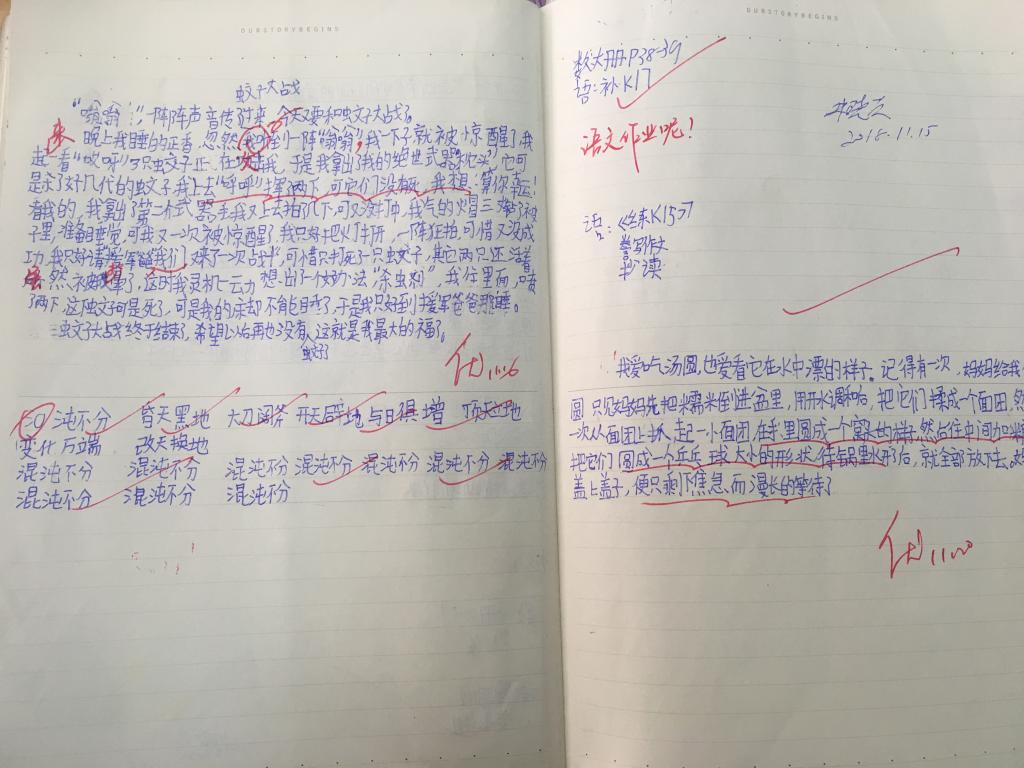 OURSTORYBEGINS
蚊子大战
“嗡嗡！”一阵阵声音传过来,今天又要和蚊子大战了。
晚上我睡的正香,忽然,我听到一阵“嗡嗡,”我一下子就被惊醒了,我
起一看“哎呀”只蚊子正在我,于是我拿出了我的绝世武器“枕头”它可
是杀了好几代的蚊子,我上去“呼呼”挥了两下,可它们没有死,我想:算你幸运!
看我的,我拿出了第二个武器,手我又上去拍了几下,可没打中,我气的火冒三,被
子里,准备睡觉,可我又一次被惊醒了,我只好把火丁开,一阵狂拍,可惜又没成
功,我只好请,我们又来了一次战斗,可惜只打死了一只蚊子,其它两只还活着
然,被了,这时我灵机一云力想出了一个办法,“杀虫剂”,我往里面,喷
了两下,这蚊可是死了,可是我的床却不能睡了,于是我只好到援军爸爸那睡。
蚊子大战终于结束了,希望以后再也没有,这就是我最大的福了。
蚊子
优 11.16
混沌不分 昏天黑地 大刀阔斧 开天辟地 与日俱增 顶天立地
变化万端 改天换地
混沌不分 混沌不分 混沌不分 混沌不分 混沌不分 混沌不分 混沌不分
混沌不分 混沌不分 混沌不分
OURSTORYBEGINS
数大册P38-39
语:补K17
语文作业呢！
2018.11.15
语:《练K15》
写作文
读
我爱吃汤圆,也爱看它在水中漂的样子。记得有一次,妈妈给我
圆只见妈妈先把米糯米倒进盆里,用开水调和后,把它们揉成一个面团,然
一次从面团上抓起一小面团,在手里圆成一个窝的样,然后往中间加
把它们圆成一个乒乓球大小的形状,待锅里水开后,就全部放下去,
盖上盖子,便只剩下焦急而漫长的等待了
优 11.20